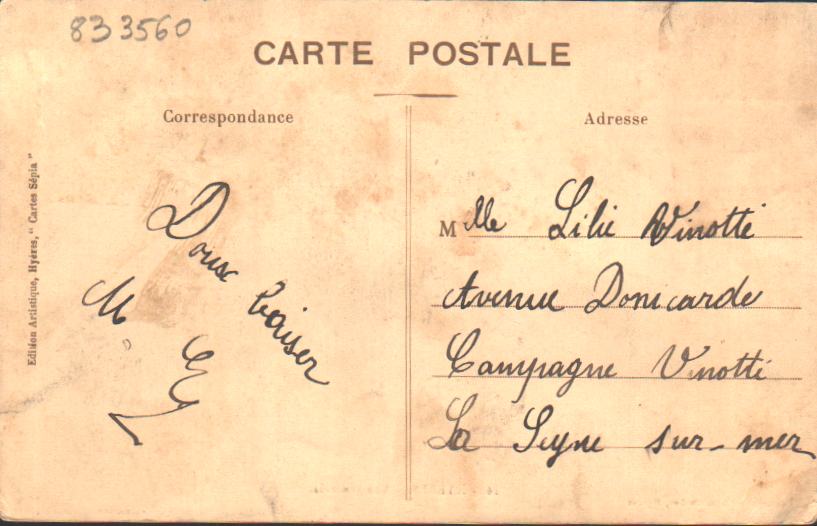 833560
CARTE POSTALE
Correspondance
Adresse
Edition Artistique, Hyères, " Cartes Sépia "
Doux baiser
M
Mlle Lilie Vinotti
Avenue Donicarde
Campagne Vinotti
La Seyne sur-mer